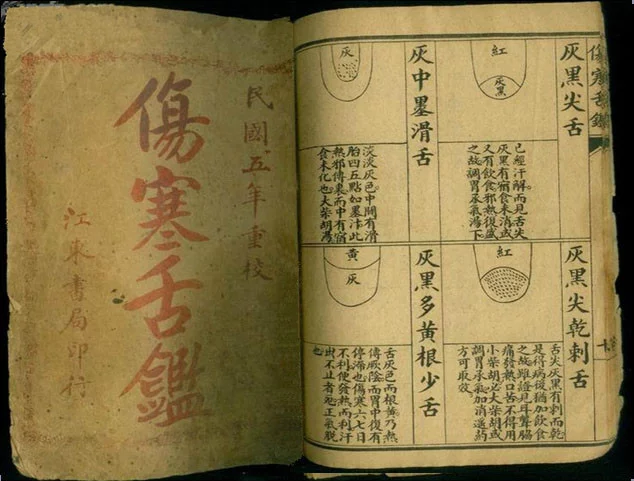 民國五年重校
傷寒舌鑑
江東書局印行
傷寒舌鑑
灰黑尖舌
紅
灰黑
已經汗解而見舌尖
灰黑有宿食未消或
又有飲食邪熱復盛
之故調胃承氣湯下
灰黑尖乾刺舌
紅
舌尖灰黑有刺而乾
是得病後猶加飲食
之故雖證見耳聾脇
痛發熱口苦不得用
小柴胡必大柴胡或
調胃承氣加消導藥
方可取效
灰中墨滑舌
灰
淡淡灰色中間有滑
胎四五點如墨汁此
熱邪傳裏而中有宿
食未化也大柴胡湯
灰黑多黃根少舌
黃
灰
舌灰色而根黃乃熱
傳厥陰而胃中復有
停滯也傷寒六七日
不利便發熱而利汗
出不止者死正氣脫
也